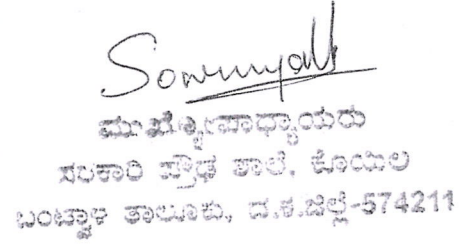 Sowmyalk
ಮುಖ್ಯೋಪಾಧ್ಯಾಯರು
ಸರಕಾರಿ ಪ್ರೌಢ ಶಾಲೆ, ಕೊಯಿಲ
ಬಂಟ್ವಾಳ ತಾಲೂಕು, ದ.ಕ.ಜಿಲ್ಲೆ-574211